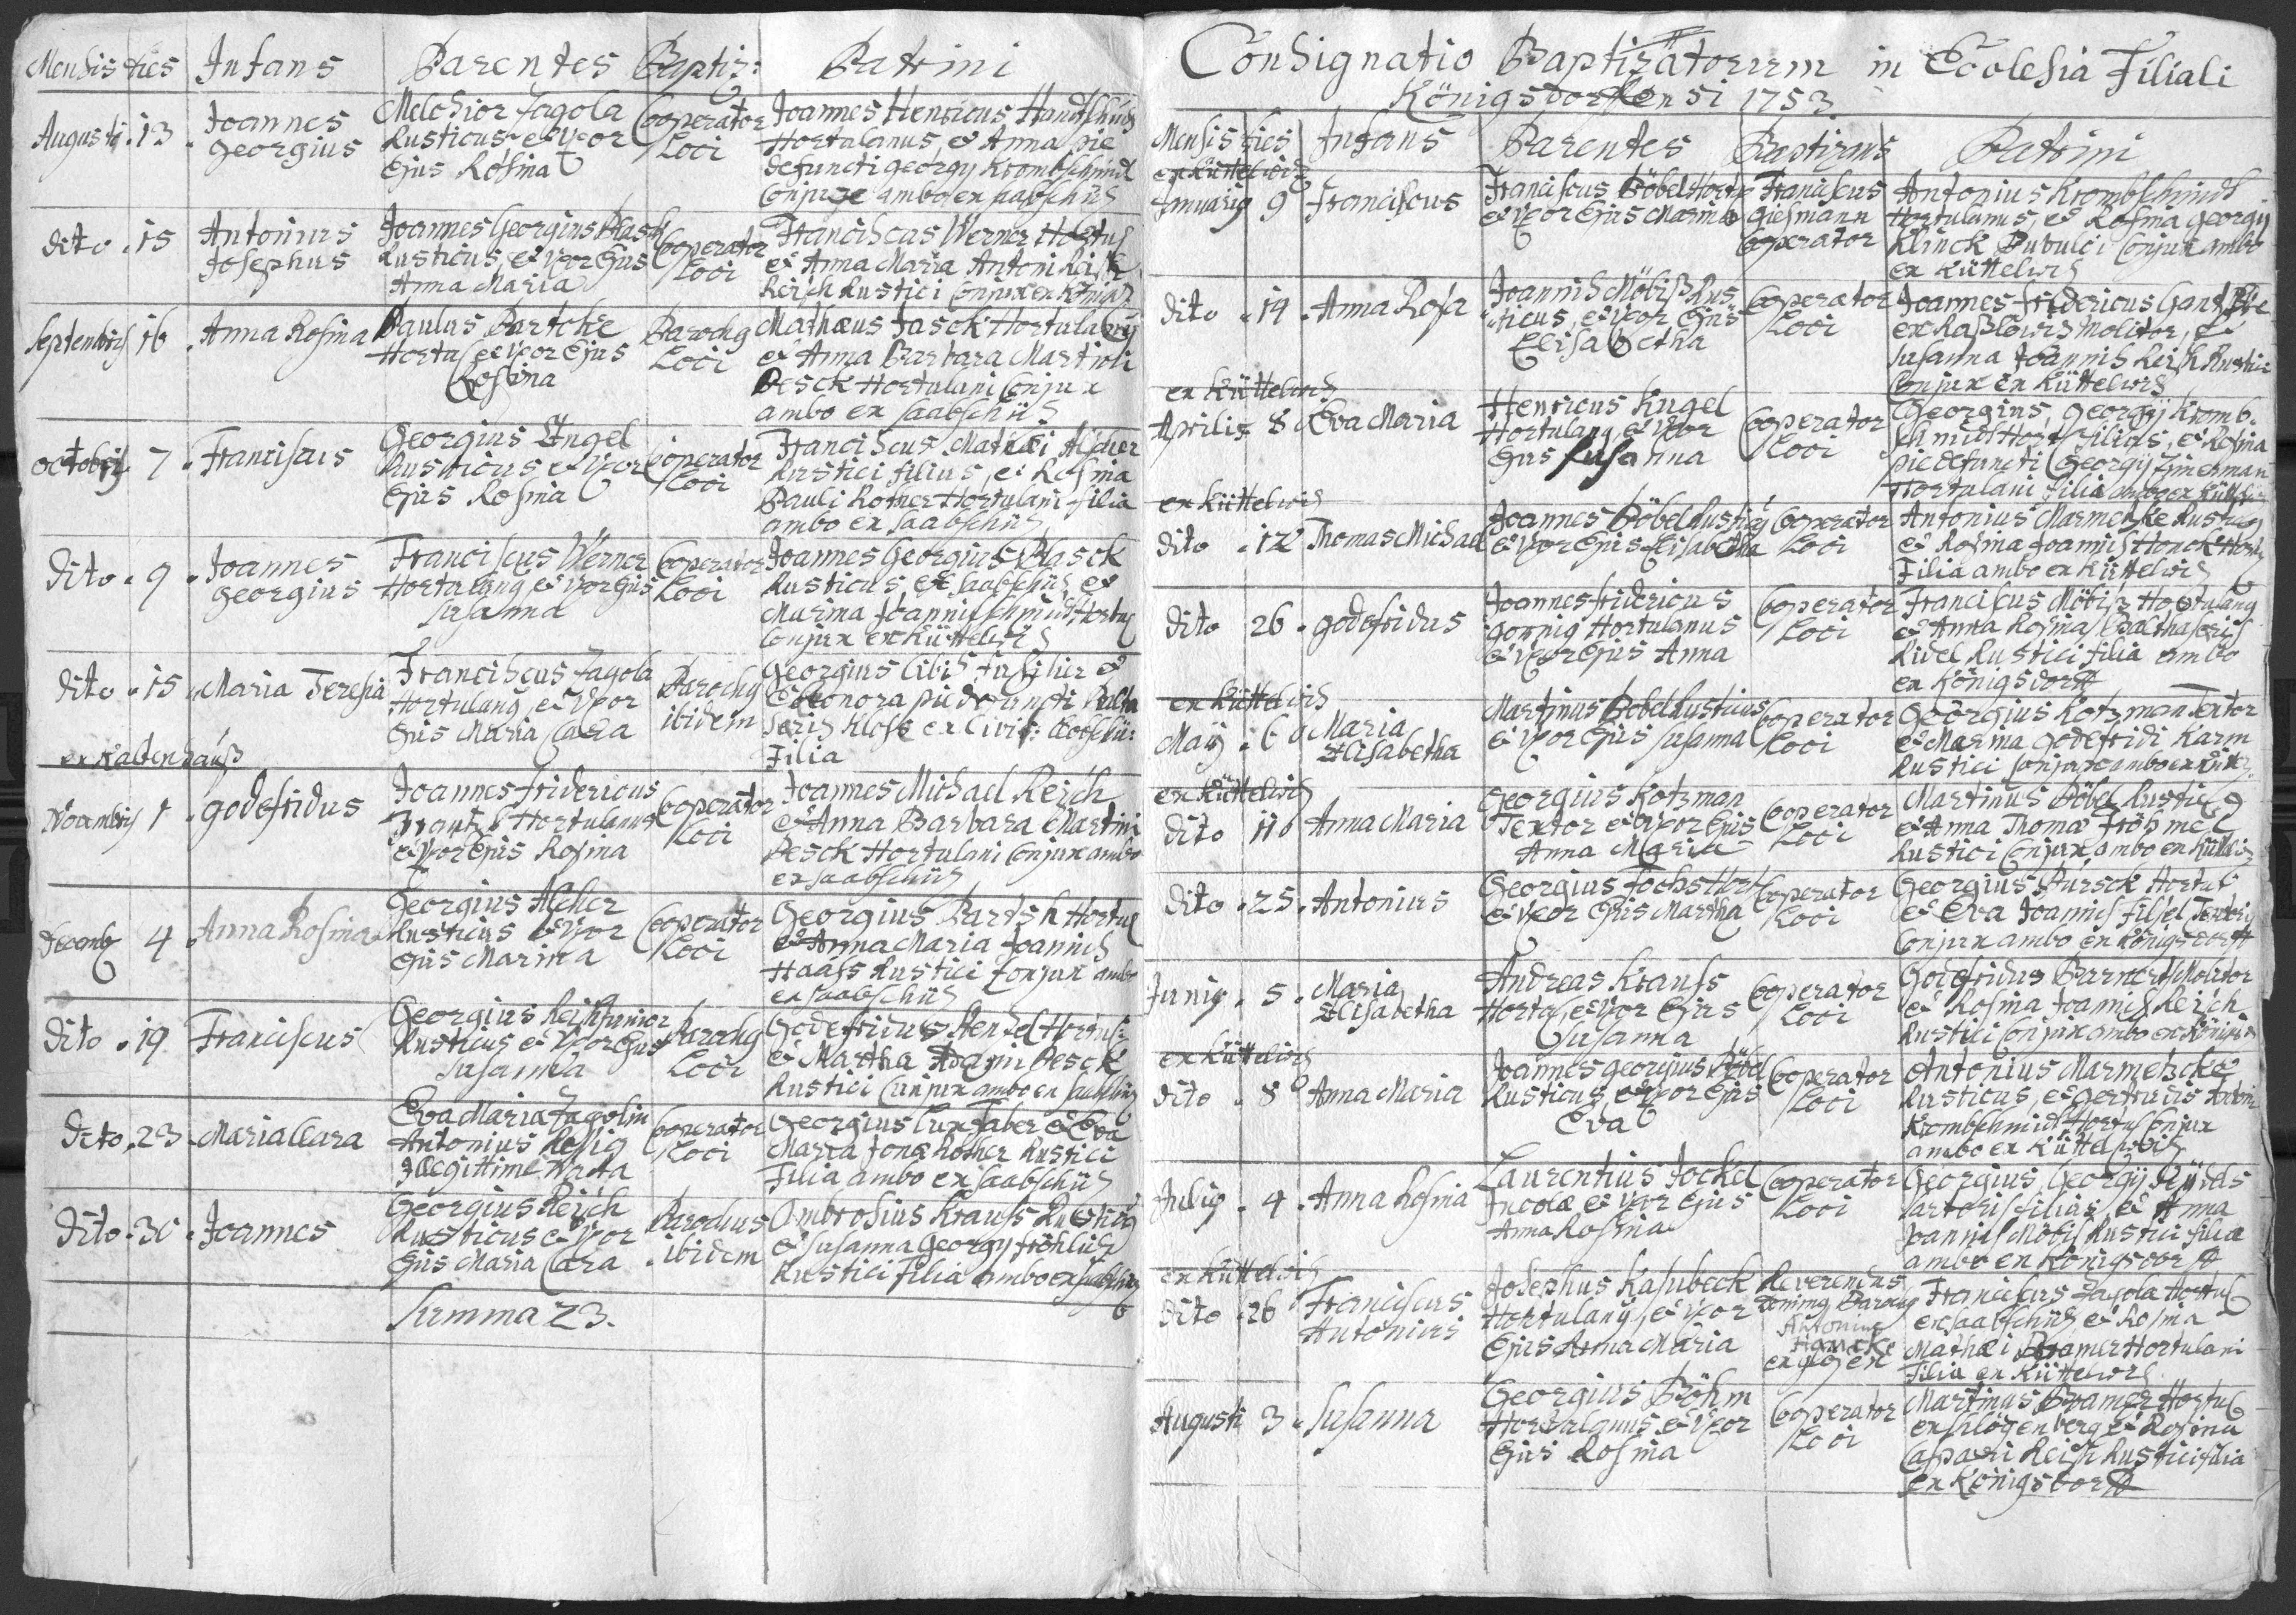 Mensis dies Infans Parentes Baptiz: Patrini
Augusti 13 Joannes Georgius
Melchior Jagola
Rusticus et Uxor
Ejus Rosina
Cooperator
Loci
Joannes Henricus
Hortulanus, et Anna pie
defuncti georgy Krombschmid
Conjuge ambo ex saabschüs
dito 15 Antonius
Josephus
Joannes Georgius Plask
Rusticus, et Uxor Ejus
Anna Maria
Cooperator
Loci
Franciscus Werner Hortul
et Anna Maria Antoni
Reich Rustici Conjux ex
Septembris 16 Anna Rosina
Paulus Bartcke
Hortul et Uxor Ejus
Rosina
Parochg
Loci
Mathæus Jasck Hortulang
et Anna Barbara Martini
Pesck Hortulani Conjux
ambo ex saabschüs
octobris 7 Franciscus
Georgius Engel
Rusticus et Uxor
Ejus Rosina
Cooperator
Loci
Franciscus Mathæi Ascher
Rustici filius, et Rosina
Pauli Rother Hortulani filia
ambo ex saabschüs
dito 9 Joannes
georgius
Franciscus Werner
Hortulang et Uxor Ejus
Susanna
Cooperator
Loci
Joannes Georgius Plasck
Rusticus ex saabschüs et
Marina Joannis schmidt Hortul
Conjux ex Küttelwis
dito 15 Maria Teresia
Franciscus Jagola
Hortulang, et Uxor
Ejus Maria Clara
Parochg
ibidem
Georgius Cibis et
Eleonora pie defuncti Baltha
saris Kloss ex Civit:
Filia
ex Kaldenhauss
Novembris 1 godefridus
Joannes fridericus
Hortulanus
et Uxor Ejus Rosina
Cooperator
Loci
Joannes Michael Reich
et Anna Barbara Martini
Pesck Hortulani Conjux ambo
ex saabschüs
decemb 4 Anna Rosina
Georgius Ascher
Rusticus et Uxor
Ejus Marina
Cooperator
Loci
Georgius Bartsh Hortul
et Anna Maria Joannis
Haass Rustici Conjux ambo
ex saabschüs
dito 19 Franciscus
Georgius Reich Junior
Rusticus et Uxor Ejus
Susanna
Parochg
Loci
Godefridus Hensel Hortul:
et Martha Adami Pesck
Rustici Conjux ambo ex saabschüs
dito 23 Maria Clara
Eva Maria Jagolin
Antonius
Illegittime Nata
Cooperator
Loci
Georgius Lux Faber et Eva
Maria Rother Rustici
Filia ambo ex saabschüs
dito 30 Joannes
Georgius Reich
Rusticus et Uxor
Ejus Maria Clara
Parochus
ibidem
Ambrosius Krauss Rusticg
et Susanna Georgy fröhlich
Rustici Filia ambo ex saabschüs
Summa 23.
Consignatio Baptizatorum in Ecclesia Filiali
Königsdorffensi 1753.
Mensis dies Infans Parentes Baptizans Patrini
ex Küttelwis
Januarij 9 Franciscus
Franciscus Böbel Hortul
et Uxor Ejus Marina
Franciscus
Giesmann
Cooperator
Antonius Krombschmidt
Hortulanus, et Rosina georgij
Klinck Bubulci Conjux ambo
ex Küttelwis
dito 14 Anna Rosa
Joannis Möbiss Rus
ticus, et Uxor Ejus
Elisabetha
Cooperator
Loci
Joannes fridericus
ex Molitor, et
Susanna Joannis Reich Rustici
Conjux ex Küttelwis
ex Küttelwis
Aprilis 8 Eva Maria
Henricus Kugel
Hortulang, et Uxor
Ejus Susanna
Cooperator
Loci
Georgius, georgij Kromb-
schmidt Hort filius, et Rosina
pie defuncti Georgij
Hortulani filia ambo ex Küttelwis
ex Küttelwis
dito 12 Thomas Michael
Joannes Böbel Rusticg
et Uxor Ejus Elisabetha
Cooperator
Loci
Antonius Marmetzke Rusticg
et Rosina Joannis Hortul
Filia ambo ex Küttelwis
dito 26 godefridus
Joannes fridericus
gornig Hortulanus
et Uxor Ejus Anna
Cooperator
Loci
Franciscus Möbiss Hortulang
et Anna Rosina Balthasaris
Ridel Rustici filia ambo
ex Königsdorff
ex Küttelwis
Maij 6 Maria
Elisabetha
Martinus Böbel Rusticus
et Uxor Ejus Susanna
Cooperator
Loci
Georgius Kotzman Textor
et Marina godefridi Karm
Rustici Conjux ambo ex Küttel
ex Küttelwis
dito 11 Anna Maria
Georgius Kotzman
Textor et Uxor Ejus
Anna Maria
Cooperator
Loci
Martinus Böbel Rusticg
et Anna Thomæ
Rustici Conjux ambo ex Küttelwis
dito 25 Antonius
Georgius Hort
et Uxor Ejus Martha
Cooperator
Loci
Georgius Pursck Hortul
et Eva Joannis Textoris
Conjux ambo ex Königsdorff
Junij 5 Maria
Elisabetha
Andreas Krauss
Hortul, et Uxor Ejus
Susanna
Cooperator
Loci
Godefridus Barnert Molitor
et Rosina Joannis Reich
Rustici Conjux ambo ex Königsd
ex Küttelwis
dito 8 Anna Maria
Joannes georgius Böbel
Rusticus, et Uxor Ejus
Eva
Cooperator
Loci
Antonius Marmetzcke
Rusticus, et gertrudis Antoni
Krombschmidt Hortul Conjux
ambo ex Küttelwis
Julij 4 Anna Rosina
Laurentius Jockel
Incola et Uxor Ejus
Anna Rosina
Cooperator
Loci
Georgius, Georgij
Sartoris filius, et Anna
Joannis Möbis Rustici filia
ambo ex Königsdorff
ex Küttelwis
dito 26 Franciscus
Antonius
Josephus Kasubeck
Hortulang, et Uxor
Ejus Anna Maria
Reverendus
Doming Parochg
Antonius
Hancke
ex
Franciscus Jagola Hortul
ex saabschüs et Rosina
Mathæi Bramer Hortulani
Filia ex Küttelwis
Augusti 3 Susanna
Georgius Böhm
Hortulanus et Uxor
Ejus Rosina
Cooperator
Loci
Martinus Bramer Hortul
ex et Rosina
Caspari Reich Rustici filia
ex Königsdorff